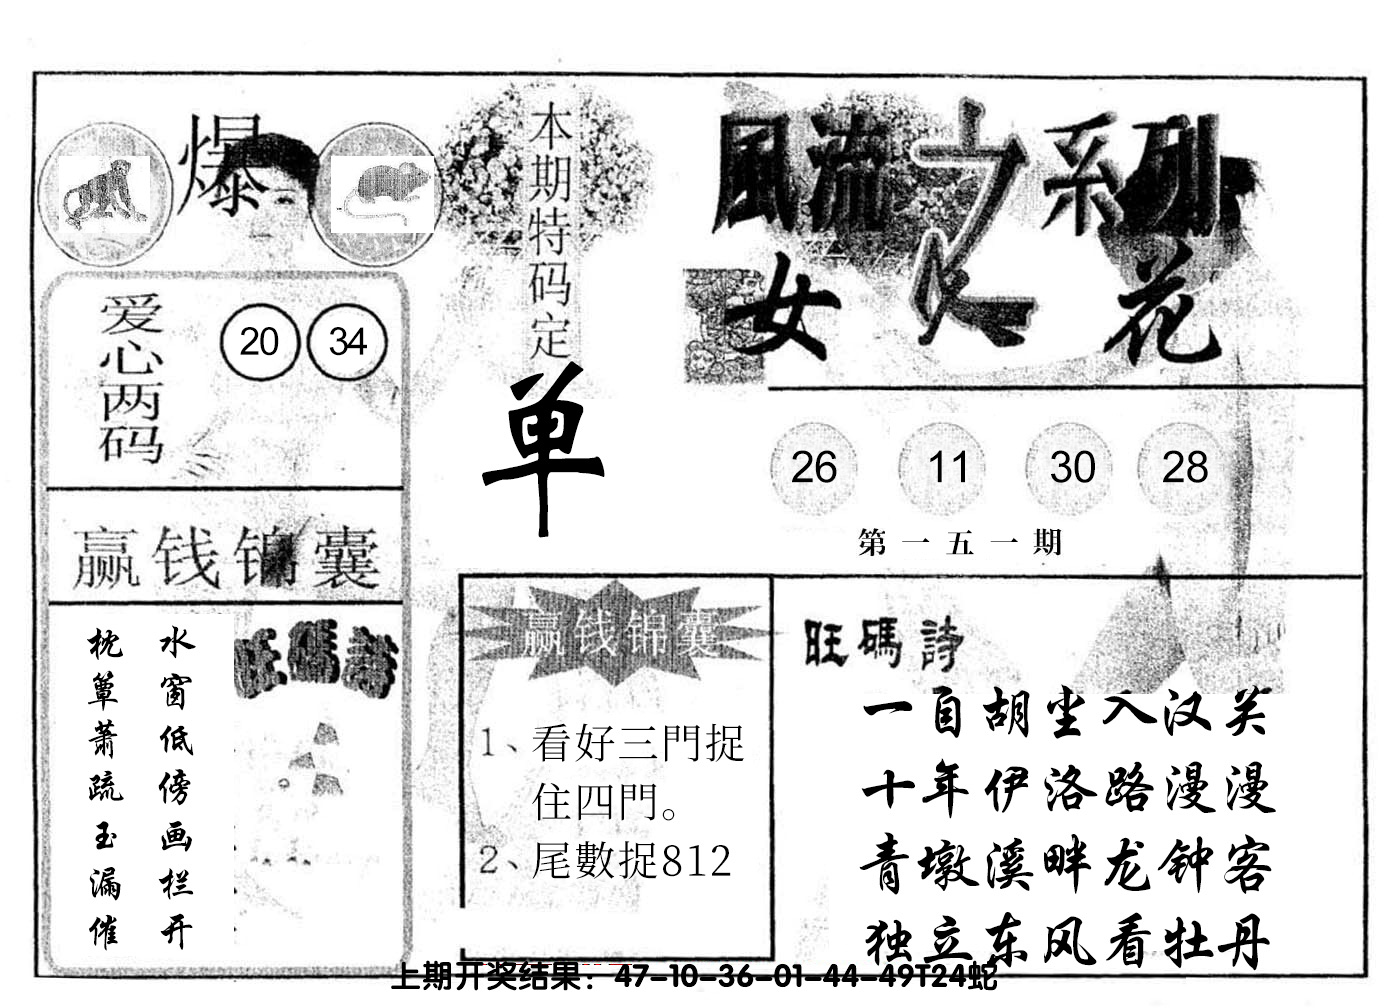 爆
本期特码定
单
風流之系列
女人花
爱心两码
20 34
26 11 30 28
第一五一期
赢钱锦囊
水窗低傍画栏开
枕簟萧疏玉漏催
旺碼詩
赢钱锦囊
1、看好三門捉
住四門。
2、尾數捉812
旺碼詩
一自胡尘入汉关
十年伊洛路漫漫
青墩溪畔龙钟客
独立东风看牡丹
上期开奖结果：47-10-36-01-44-49T24蛇